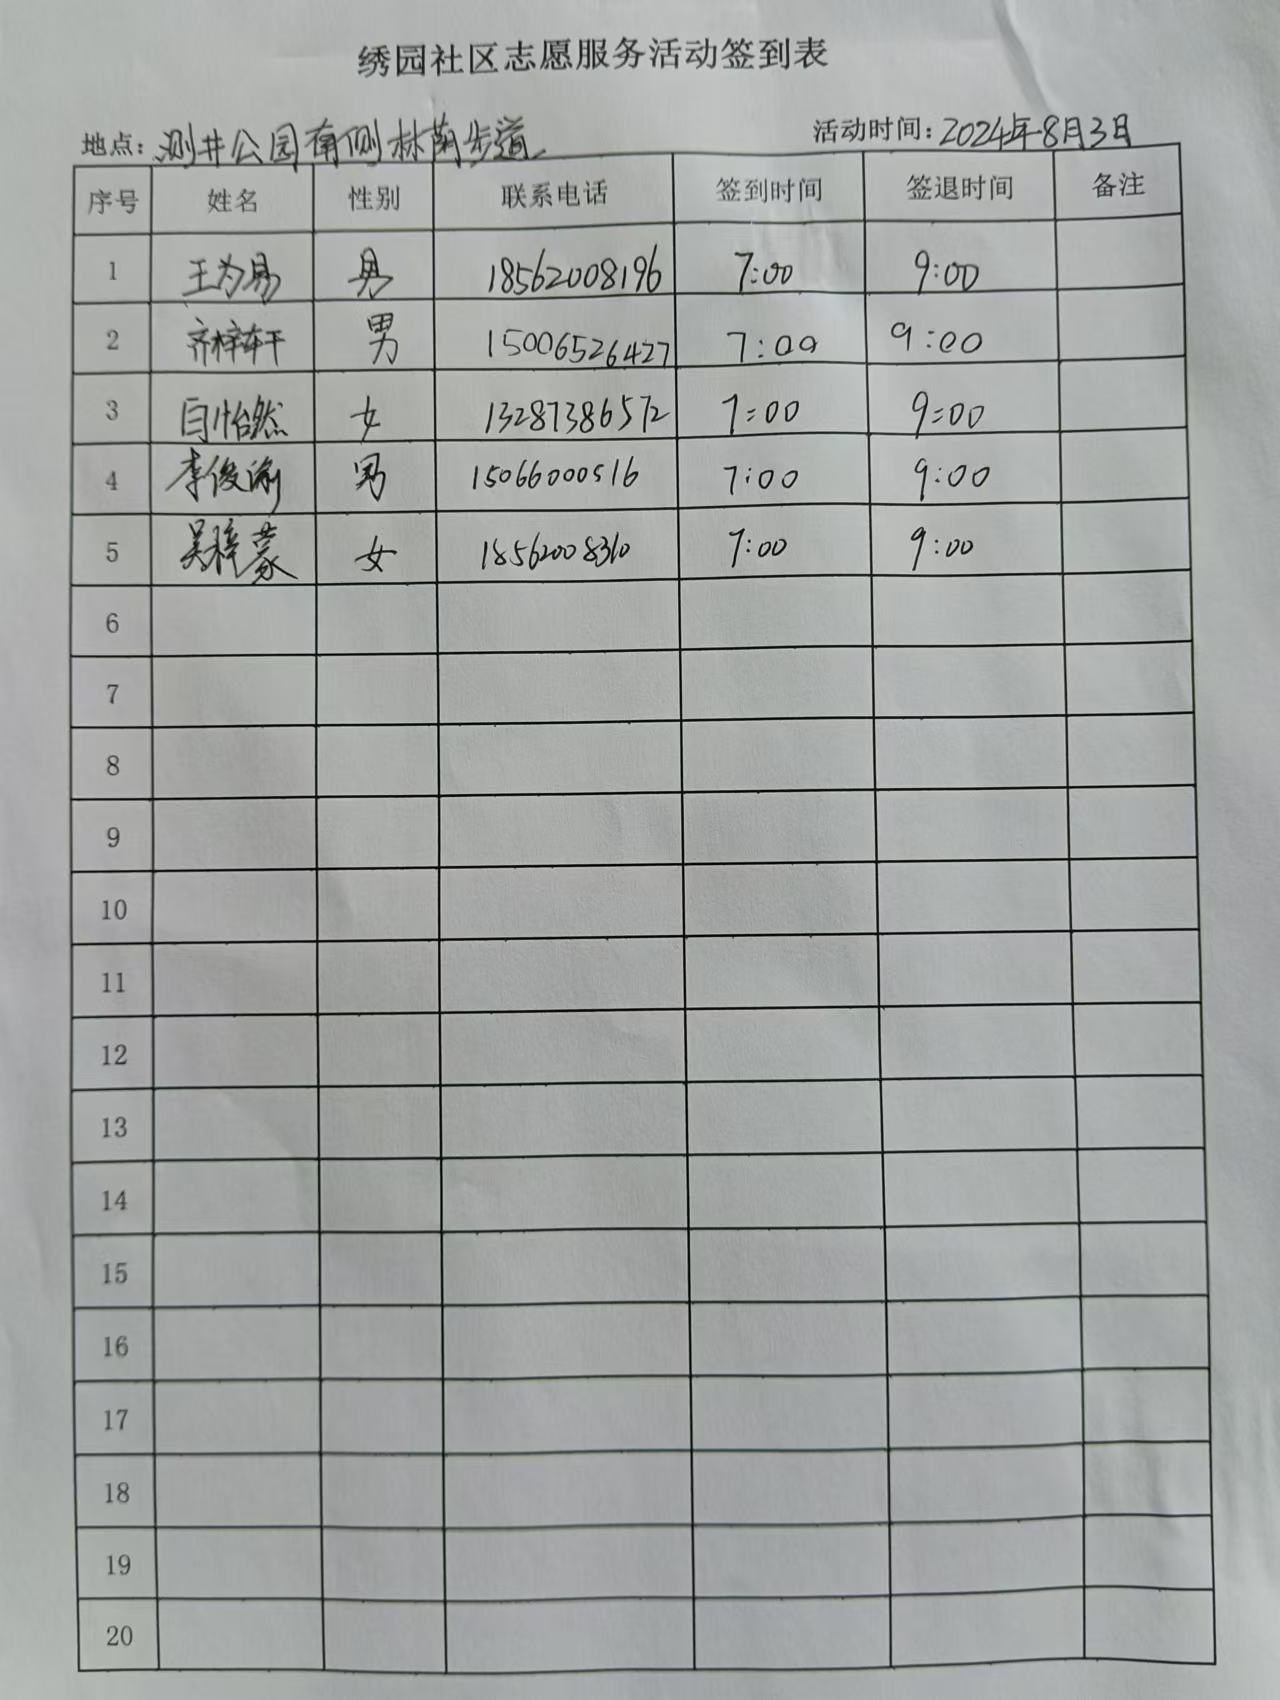 绣园社区志愿服务活动签到表
地点：测井公园南侧林荫步道 活动时间：2024年8月3日
序号 姓名 性别 联系电话 签到时间 签退时间 备注
1 王为易 男 18562008196 7:00 9:00
2 齐梓轩 男 15006526427 7:00 9:00
3 闫怡然 女 13287386572 7:00 9:00
4 李俊渝 男 15066000516 7:00 9:00
5 吴梓蒙 女 18562008310 7:00 9:00
6
7
8
9
10
11
12
13
14
15
16
17
18
19
20